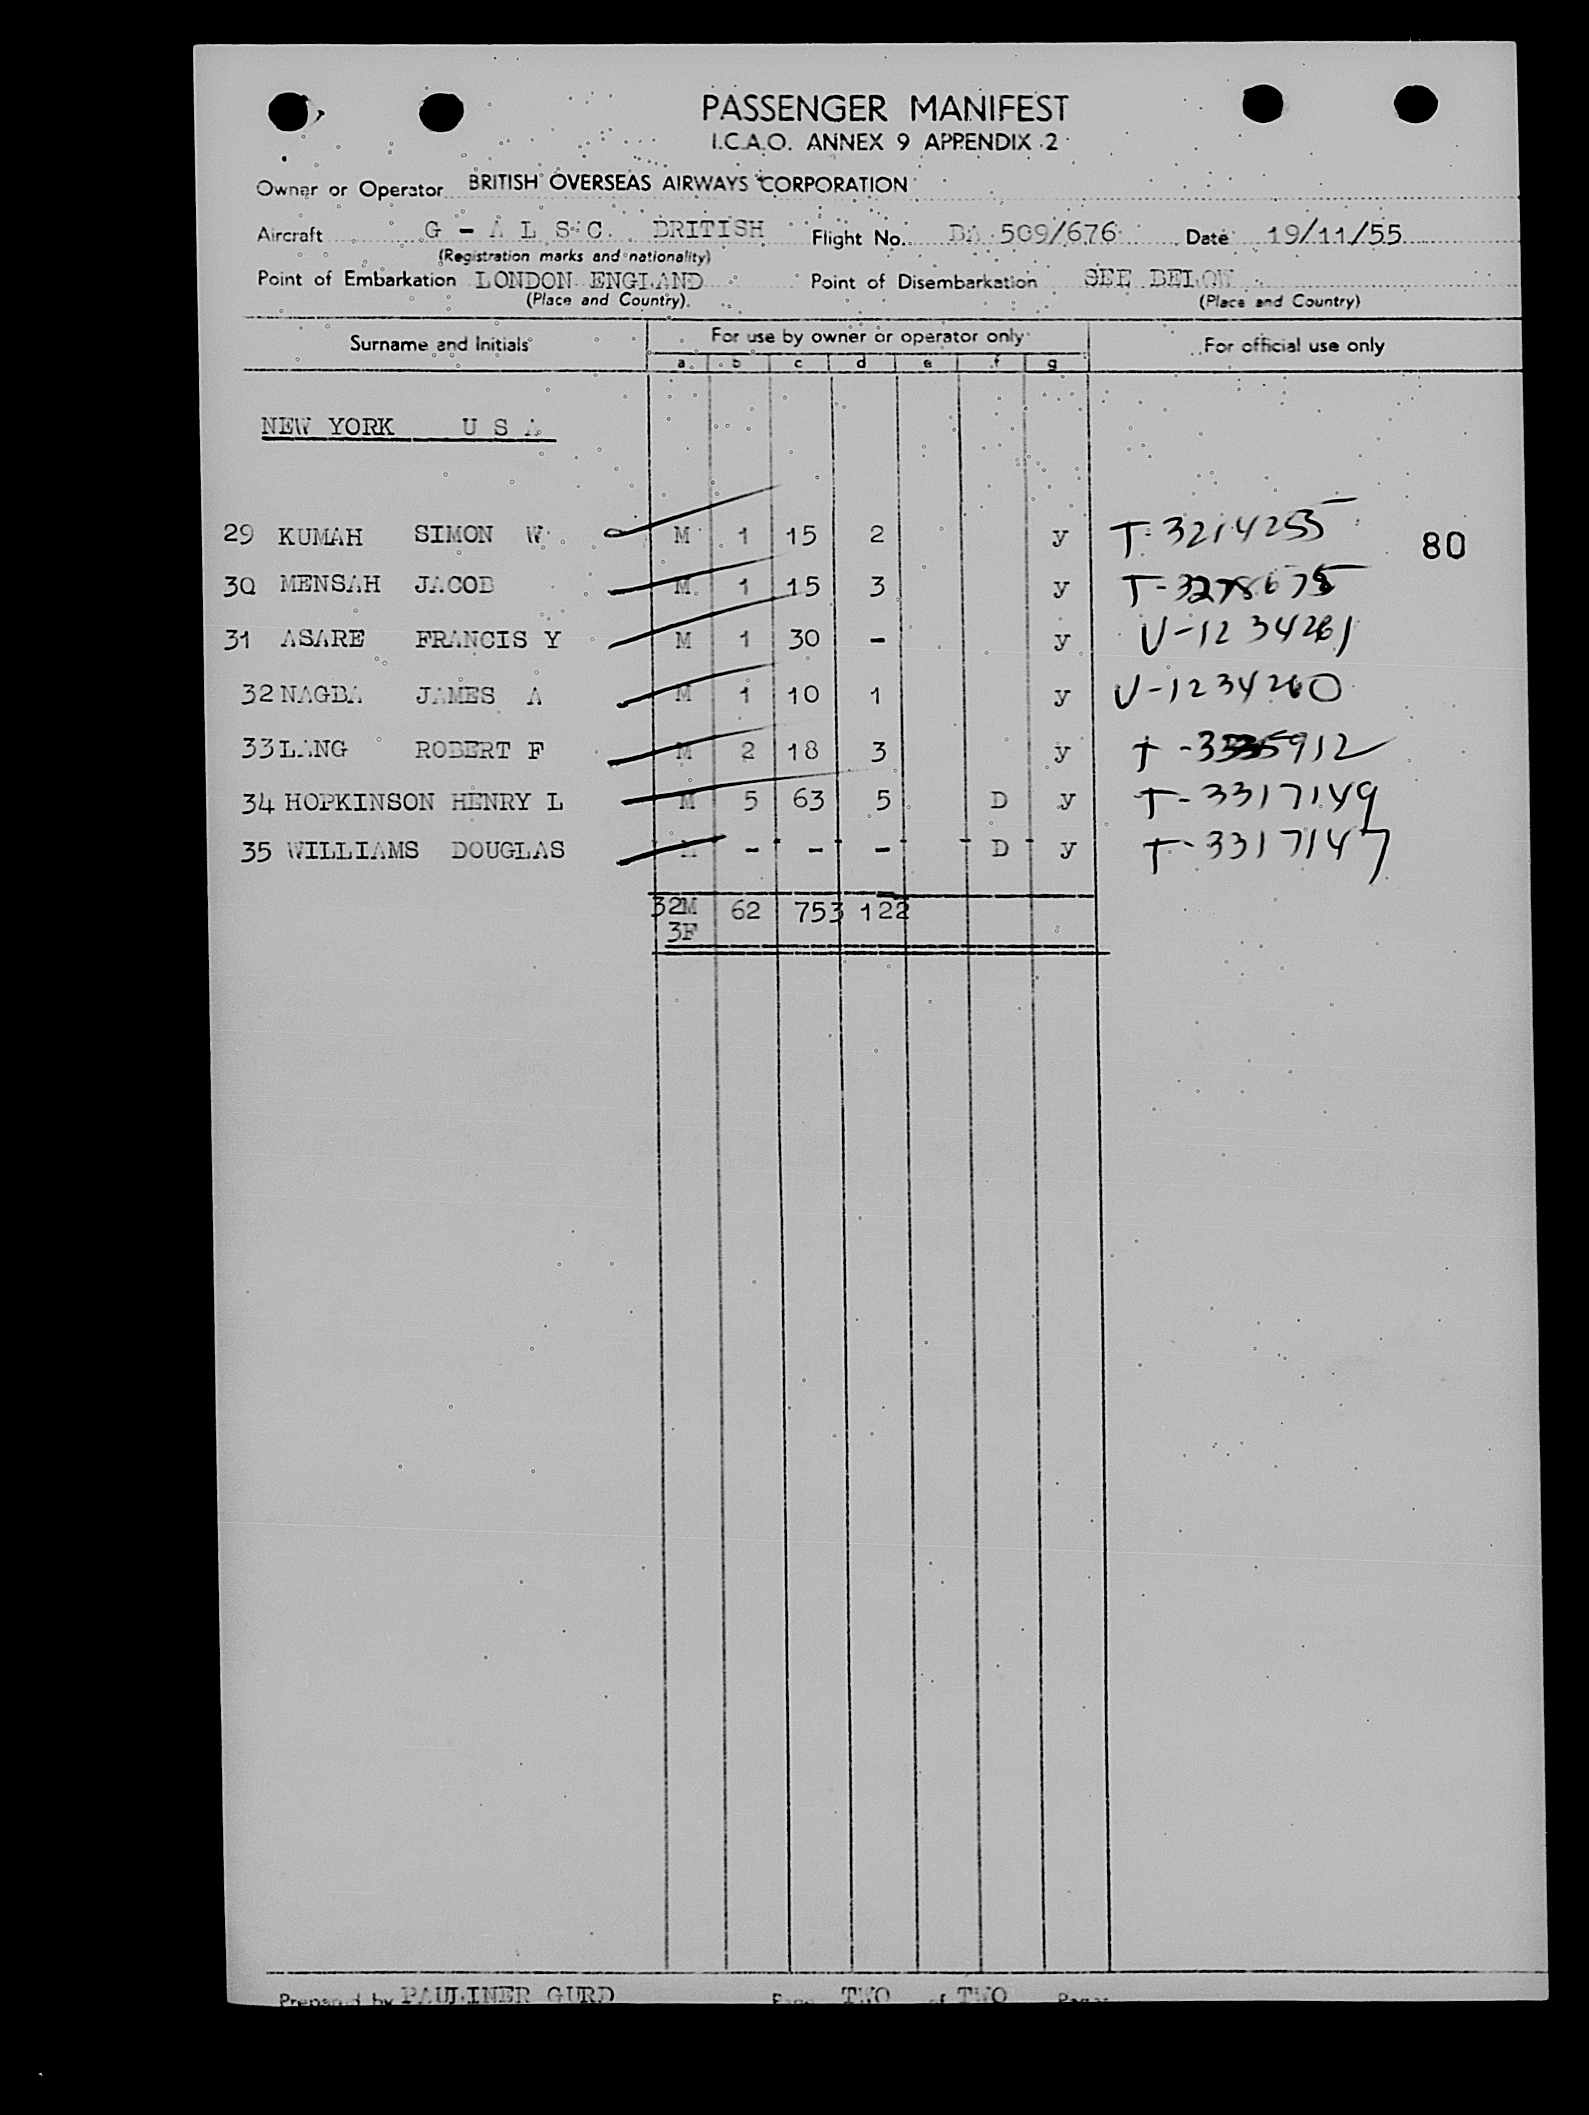 PASSENGER MANIFEST
I.C.A.O. ANNEX 9 APPENDIX 2
Owner or Operator BRITISH OVERSEAS AIRWAYS CORPORATION
Aircraft G - A L S C. BRITISH Flight No. BA 509/676 Date 19/11/55
(Registration marks and nationality)
Point of Embarkation LONDON ENGLAND Point of Disembarkation SEE BELOW
(Place and Country) (Place and Country)
Surname and Initials For use by owner or operator only For official use only
a b c d e f g
NEW YORK U S A
29 KUMAH SIMON W M 1 15 2 y T-3214255 80
30 MENSAH JACOB M 1 15 3 y T-3278675
31 ASARE FRANCIS Y M 1 30 - y V-1234261
32 NAGBA JAMES A M 1 10 1 y V-1234260
33 LANG ROBERT F M 2 18 3 y T-
34 HOPKINSON HENRY L M 5 63 5 D y T-3317149
35 WILLIAMS DOUGLAS M - - - D y T-3317147
32M 62 753 122
3F
Prepared by PAULINER GURD Page TWO of TWO Pages